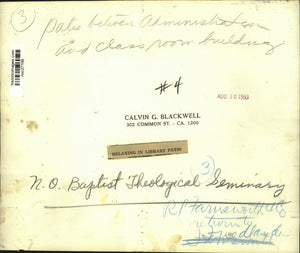 3
patio between Administration
and class room building
#4
AUG 10 1953
CALVIN G. BLACKWELL
302 COMMON ST. - CA. 1200
RELAXING IN LIBRARY PATIO
3
N.O. Baptist Theological Seminary
return to